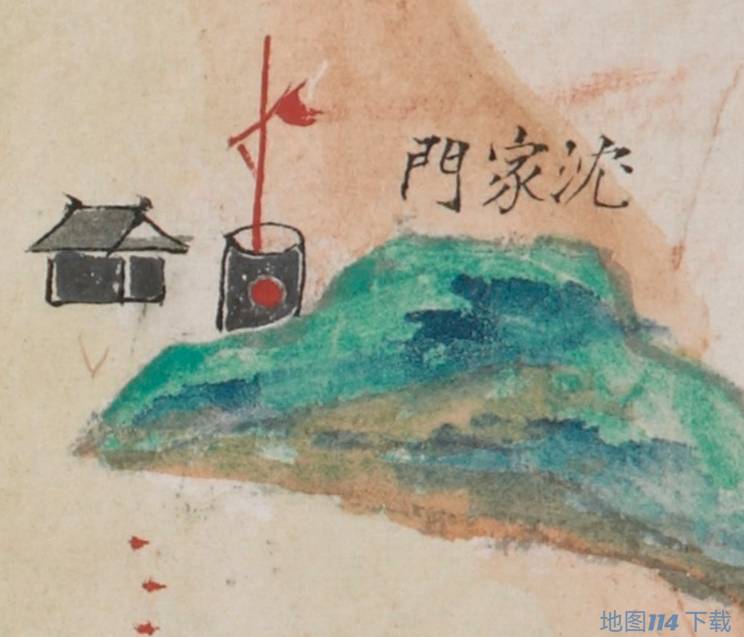 沈家門
地图114 下载